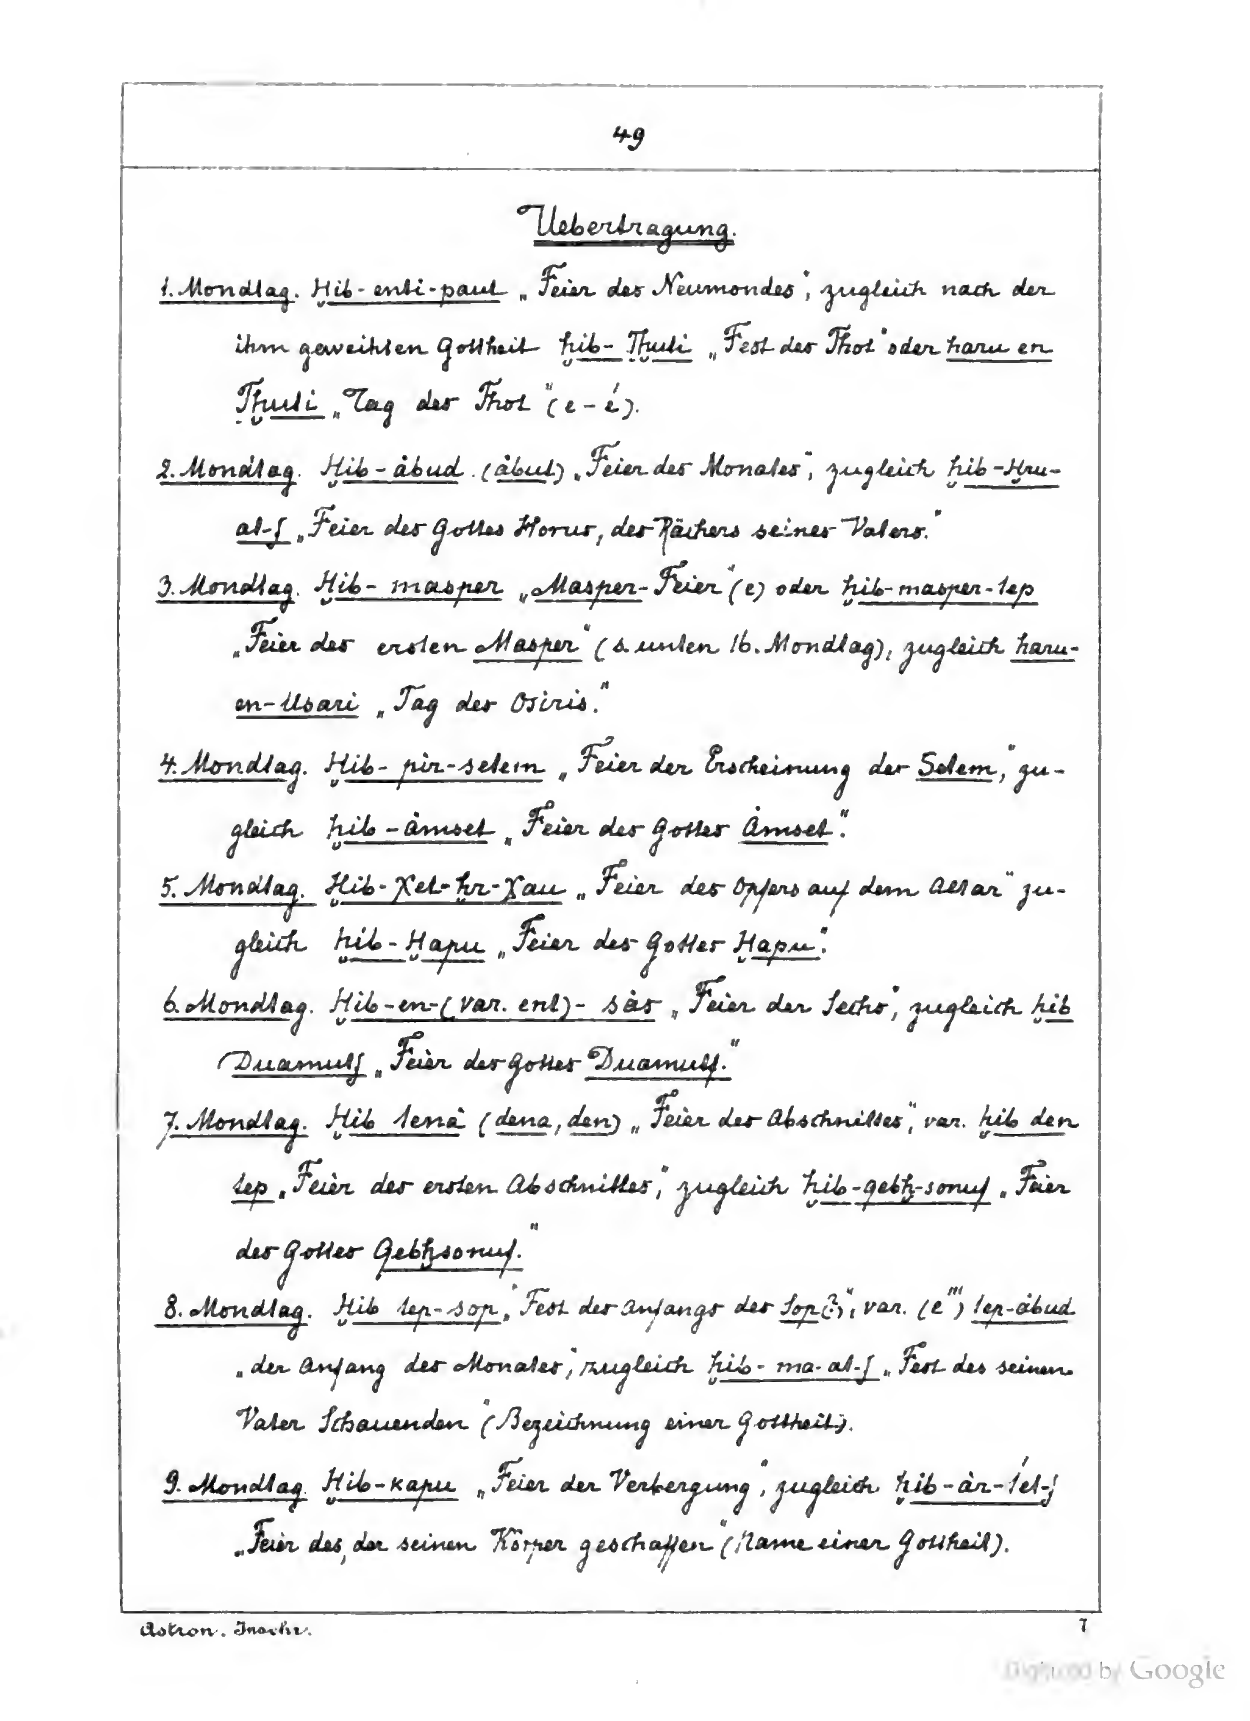 49
Uebertragung.
1. Mondtag. Ḥib-enti-paut „Feier des Neumondes“, zugleich nach der
ihm geweihten Gottheit ḥib-Ṭḥuti „Fest des Thot“ oder haru en
Ṭḥuti „Tag des Thot“ (e-é).
2. Mondtag. Ḥib-ȧbud. (ȧbut) „Feier des Monates“, zugleich ḥib-Ḥru-
at-f „Feier des Gottes Horus, des Rächers seines Vaters.“
3. Mondtag. Ḥib-masper „Masper-Feier“ (e) oder ḥib-masper-tep
„Feier des ersten Masper“ (s. unten 16. Mondtag), zugleich haru-
en-Usari „Tag des Osiris.“
4. Mondtag. Ḥib-pir-setem „Feier der Erscheinung des Setem“, zu-
gleich ḥib-ȧmset „Feier des Gottes Ȧmset“.
5. Mondtag. Ḥib-χet-ḥr-χau „Feier des Opfers auf dem Altar“ zu-
gleich ḥib-Ḥapu „Feier des Gottes Ḥapu“.
6. Mondtag. Ḥib-en-(var. ent)-sȧs „Feier der Sechs“, zugleich ḥib
Duamutf „Feier des Gottes Duamutf.“
7. Mondtag. Ḥib tenȧ (dena, den) „Feier des Abschnittes“, var. ḥib den
tep „Feier des ersten Abschnittes“, zugleich ḥib-qebḥ-sonuf „Feier
des Gottes Qebḥsonuf.“
8. Mondtag. Ḥib tep-sop „Fest des Anfangs des Sop(?)“, var. (e''') tep-ȧbud
„der Anfang des Monates“, zugleich ḥib-ma-at-f „Fest des seinen
Vater Schauenden“ (Bezeichnung einer Gottheit).
9. Mondtag. Ḥib-kapu „Feier der Verbergung“, zugleich ḥib-ȧr-t́et-f
„Feier des, der seinen Körper geschaffen“ (Name einer Gottheit).
Astron. Inschr.
7
Digitized by Google